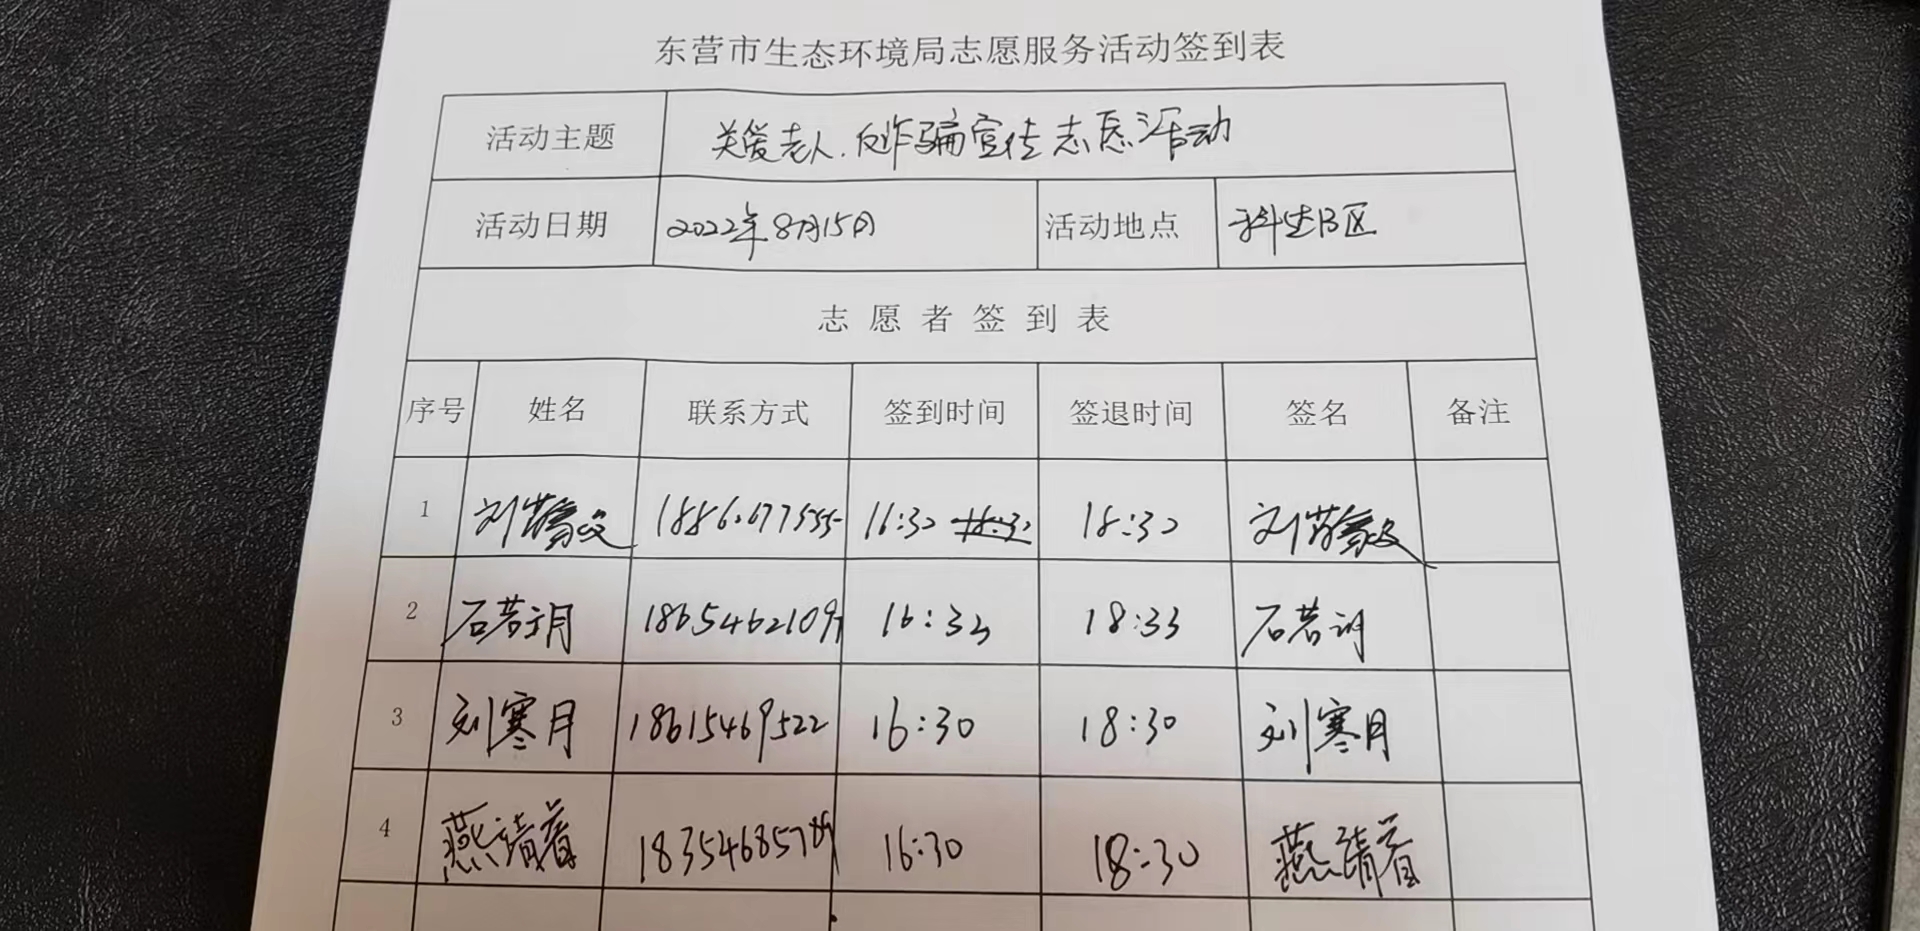 东营市生态环境局志愿服务活动签到表
活动主题 关爱老人.反诈骗宣传志愿活动
活动日期 2022年8月15日 活动地点 科达B区
志愿者签到表
序号 姓名 联系方式 签到时间 签退时间 签名 备注
1 刘 16:30 18:30 刘
2 石若 18654621097 16:33 18:33 石若
3 刘寒月 18615469522 16:30 18:30 刘寒月
4 燕 16:30 18:30 燕